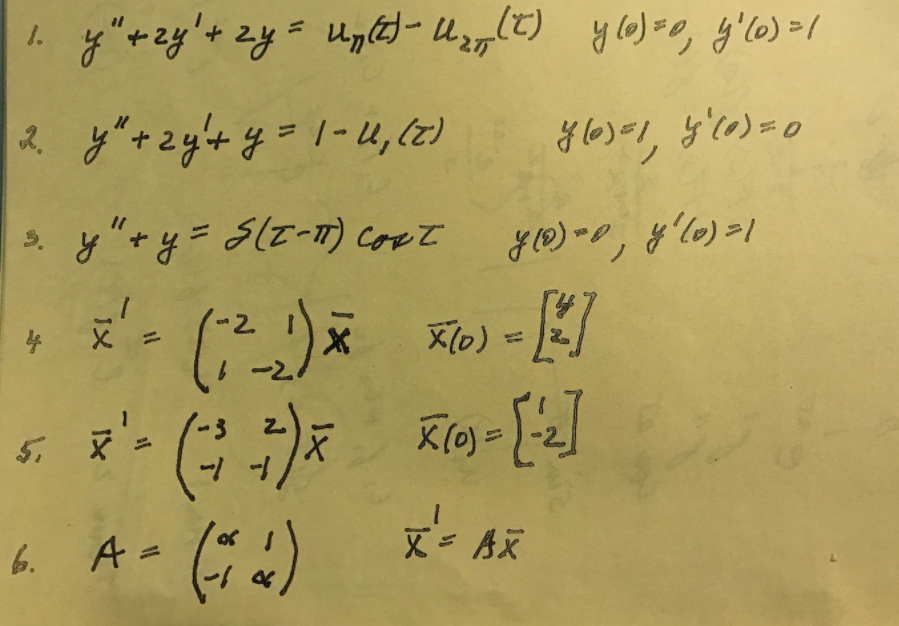 1. y'' + 2y' + 2y = u_π(t) - u_2π(t) y(0)=0, y'(0)=1
2. y'' + 2y' + y = 1 - u_1(t) y(0)=1, y'(0)=0
3. y'' + y = δ(t-π) cos t y(0)=0, y'(0)=1
4 x̄' = (-2 1; 1 -2) x̄ x̄(0) = [4; 2]
5. x̄' = (-3 2; -1 -1) x̄ x̄(0) = [1; -2]
6. A = (α 1; -1 α) x̄' = Ax̄